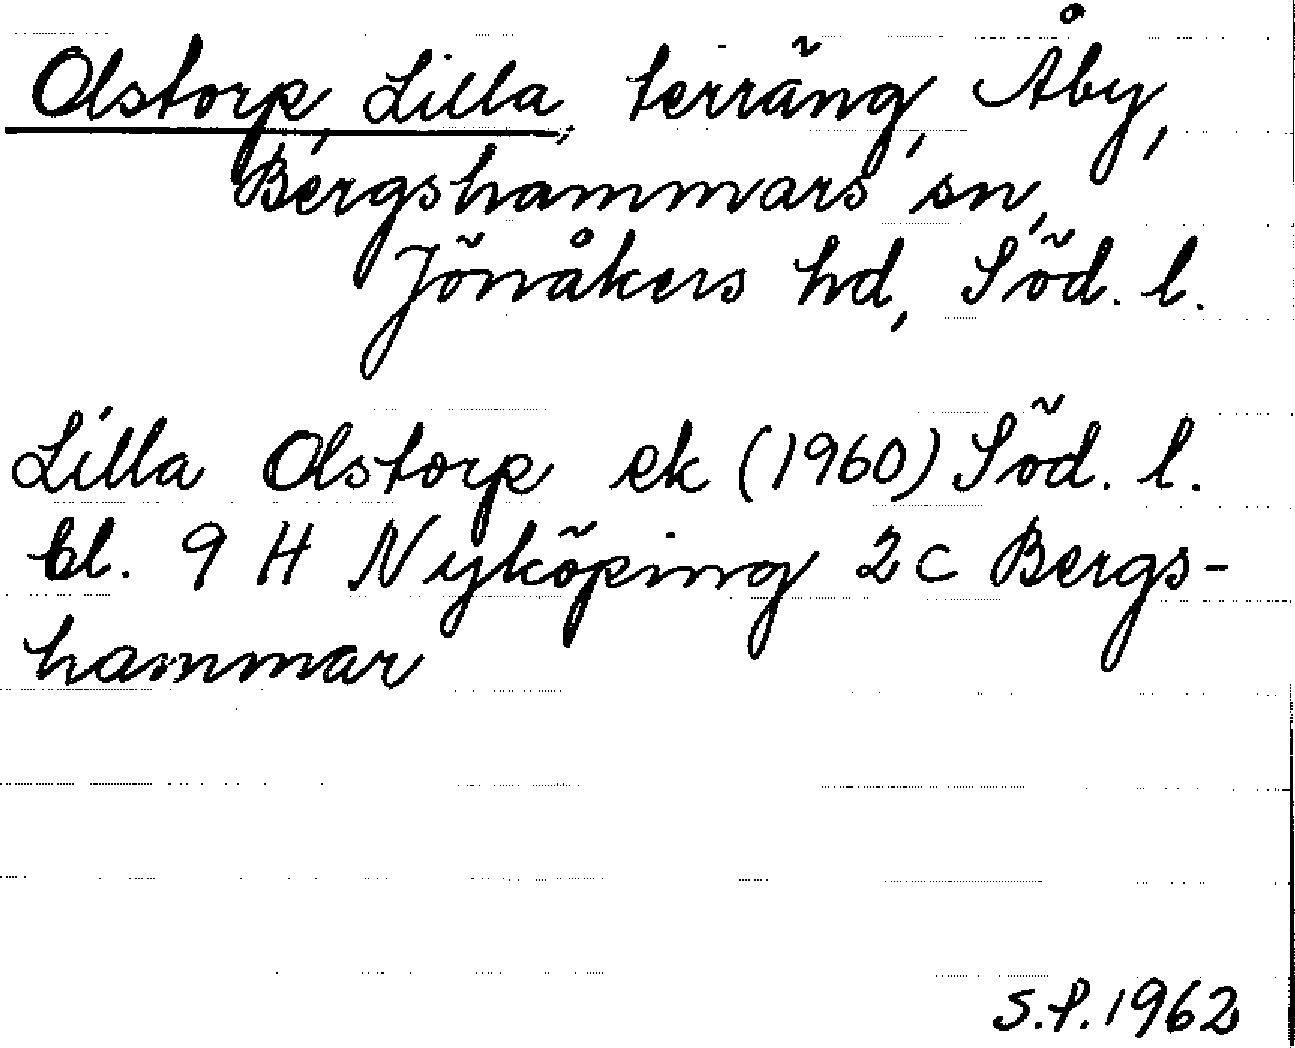 Olstorp, Lilla, terräng, Åby,
Bergshammars sn,
Jönåkers hd, Söd. l.
Lilla Olstorp ek (1960) Söd. l.
bl. 9 H Nyköping 2 c Bergs-
hammar
S.P. 1962